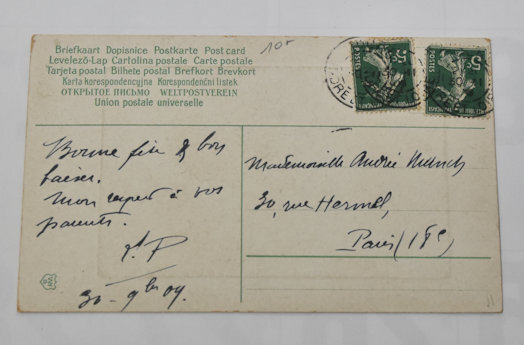 Briefkaart Dopisnice Postkarte Post card
Levelező-Lap Cartolina postale Carte postale
Tarjeta postal Bilhete postal Brefkort Brevkort
Karta korespondencyjna Korespondenční listek
ОТКРЫТОЕ ПИСЬМО WELTPOSTVEREIN
Union postale universelle
10-
5c
POSTES
5c
POSTES
Bonne fête & bon
baiser.
Mon respect à vos
parents.
P
30 - 9bre 09.
Mademoiselle Andrée
30, rue Hermel,
Paris (18e)